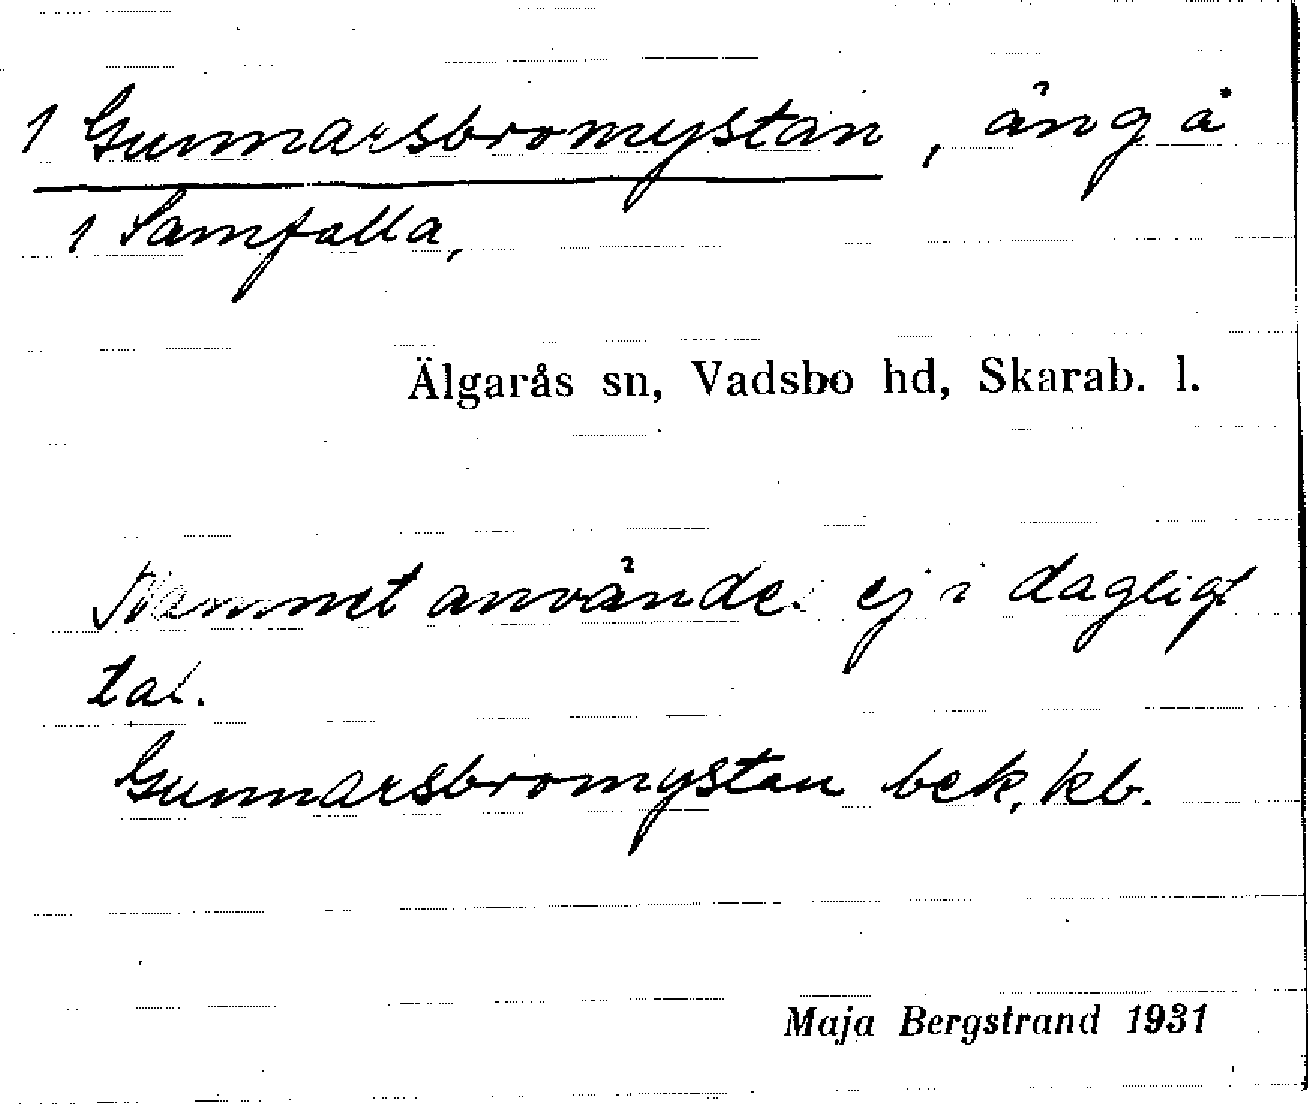 1 Gunnarsbromystan, äng å
1 Samfalla,
Älgarås sn, Vadsbo hd, Skarab. l.
Namnet användes ej i dagligt
tal.
Gunnarsbromystan bek, kb.
Maja Bergstrand 1931